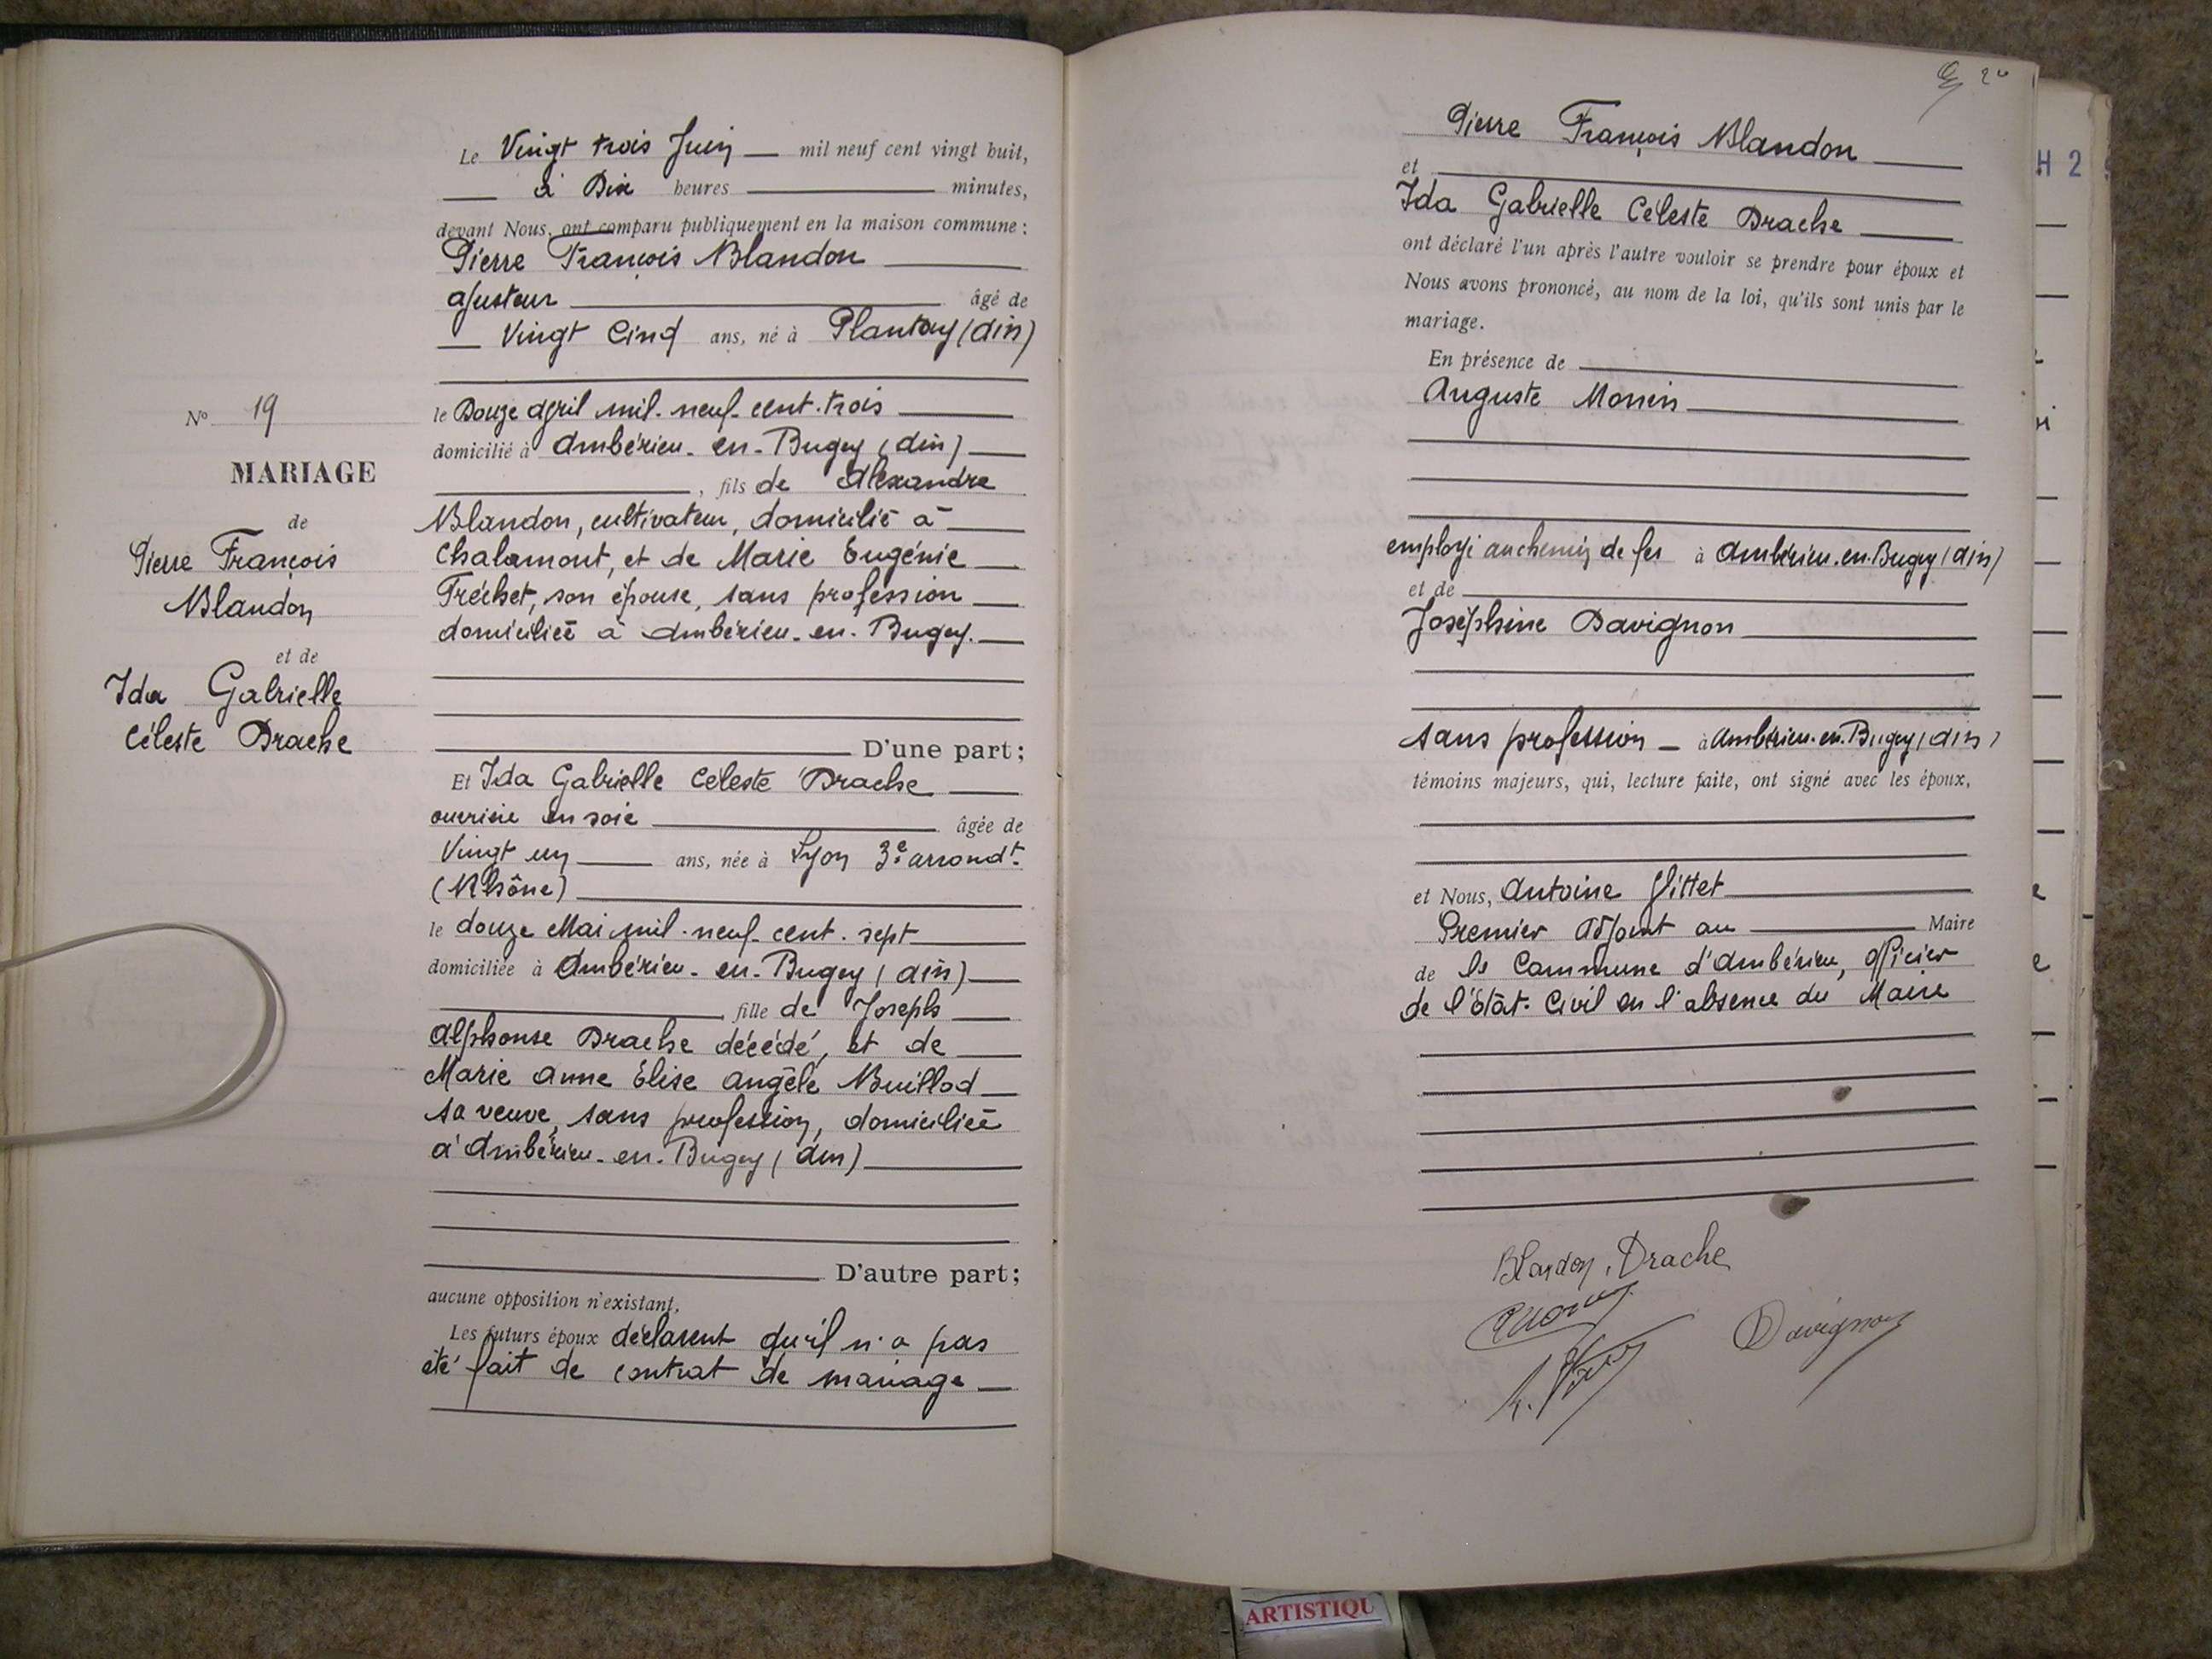 Nº 19
MARIAGE
de
Pierre François
Blandon
et de
Ida Gabrielle
Céleste Drache
Le Vingt trois Juin mil neuf cent vingt huit,
à Dix heures minutes,
devant Nous, ont comparu publiquement en la maison commune :
Pierre François Blandon
ajusteur âgé de
Vingt Cinq ans, né à Plantay (Ain)
le Douze Avril mil-neuf-cent-trois
domicilié à Ambérieu-en-Bugey (Ain)
, fils de Alexandre
Blandon, cultivateur, domicilié à
Chalamont, et de Marie Eugénie
Fréchet, son épouse, sans profession
domiciliée à Ambérieu-en-Bugey.
D'une part ;
Et Ida Gabrielle Céleste Drache
ouvrière en soie âgée de
Vingt un ans, née à Lyon 3e arrondt.
(Rhône)
le douze Mai mil-neuf-cent-sept
domiciliée à Ambérieu-en-Bugey (Ain)
, fille de Joseph
Alphonse Drache décédé, et de
Marie Anne Elise Angèle Buillod
sa veuve, sans profession, domiciliée
à Ambérieu-en-Bugey (Ain)
D'autre part ;
aucune opposition n'existant,
Les futurs époux déclarent qu'il n'a pas
été fait de contrat de mariage
Pierre François Blandon
et
Ida Gabrielle Céleste Drache
ont déclaré l'un après l'autre vouloir se prendre pour époux et
Nous avons prononcé, au nom de la loi, qu'ils sont unis par le
mariage.
En présence de
Auguste Monin
employé au chemin de fer à Ambérieu-en-Bugey (Ain)
et de
Joséphine Davignon
sans profession à Ambérieu-en-Bugey (Ain)
témoins majeurs, qui, lecture faite, ont signé avec les époux,
et Nous, Antoine
Premier Adjoint au Maire
de la Commune d'Ambérieu, Officier
de l'État-Civil en l'absence du Maire
Blandon, Drache
Davignon
H 2
ARTISTIQU